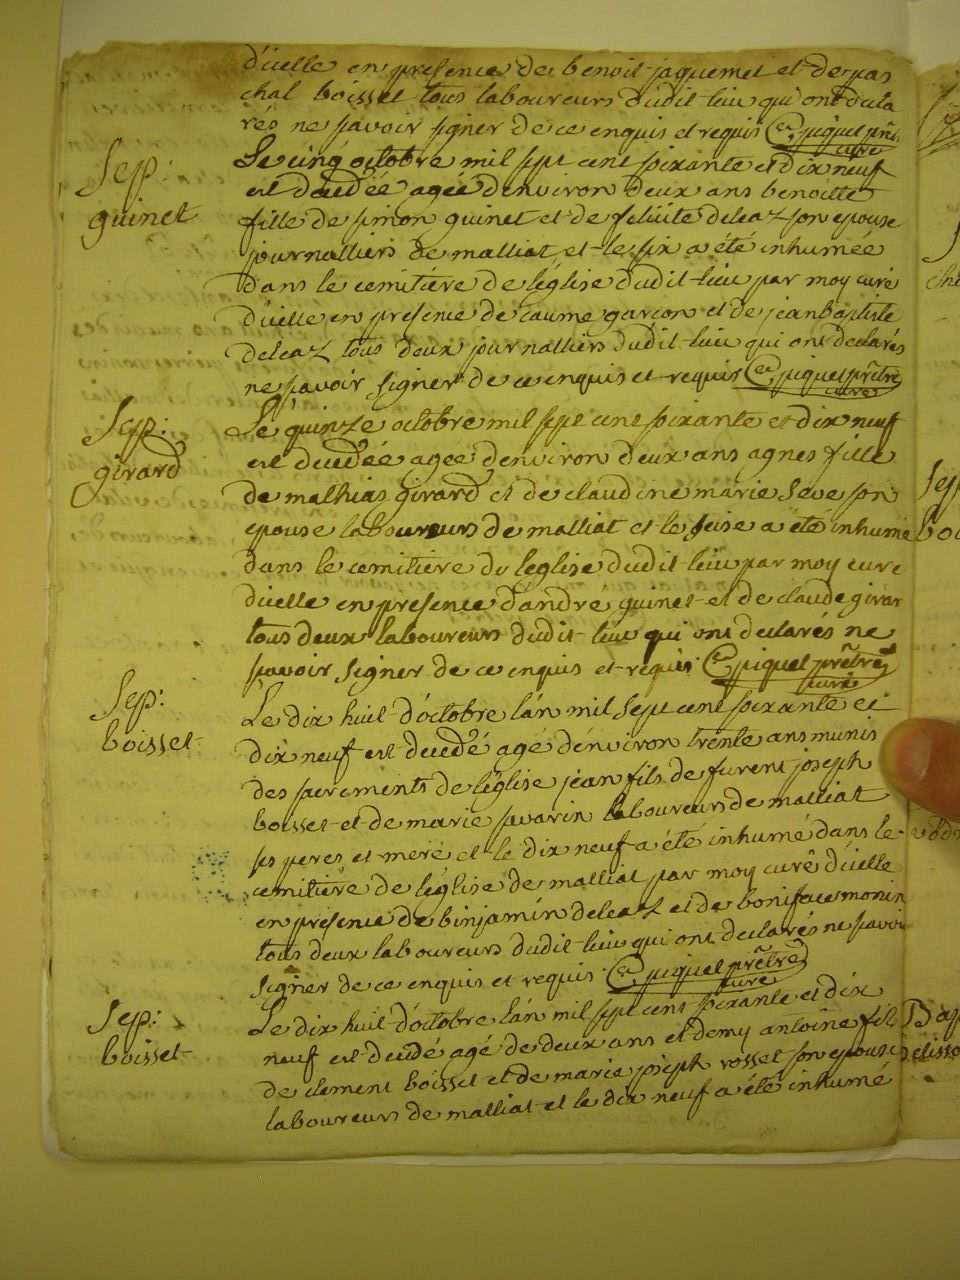 d'icelle en presence de benoit jaquemet et de pas
chal boisset tous laboureurs dudit lieu qui ont décla
rés ne savoir signer de ce enquis et requis piquet prêt.
curé
Sep:
guinet
Le cinq octobre mil sept cent soixante et dix neuf
est decedée agée denviron deux ans benoitte
fille de simon guinet et de felicité deleaz son epouse
journalliers de malliat et le six a été inhumée
dans le cemitière de léglise dudit lieu par moy curé
d'icelle en presence de garcon et de jean baptiste
deleaz tous deux journalliers dudit lieu qui ont declarés
ne savoir signer de ce enquis et requis piquet prêtre
curé
Sep:
girard
Le quinze octobre mil sept cent soixante et dix neuf
est decedée agée denviron deux ans agnes fille
de mathias girard et de claudine marie seve son
epouse laboureurs de malliat et le seise a été inhumé
dans le cemitière de léglise dudit lieu par moy curé
dicelle en presence d'andré guinet et de claude girar
tous deux laboureurs dudit lieu qui ont declarés ne
savoir signer de ce enquis et requis piquet prêtre
curé
Sep:
boisset
Le dix huit d'octobre lán mil sept cent soixante et
dix neuf est decedé agé dénviron trente ans munis
des sacrements de léglise jean fils de furent joseph
boisset et de marie savarin laboureurs de malliat
ses peres et mere et le dix neuf a été inhumé dans le
cemitière de léglise de malliat par moy curé d'icelle
en présence de binjamin deleaz et de boniface monin
tous deux laboureurs dudit lieu qui ont declarés ne savoi
signer de ce enquis et requis piquet prêtre
curé
Sep:
boisset
Le dix huit d'octobre lán mil sept cent soixante et dix
neuf est decedé agé de deux ans et demy antoine fils
de clement boisset et de marie joseph rosset son epouse
laboureurs de malliat et le dix neuf a été inhumé